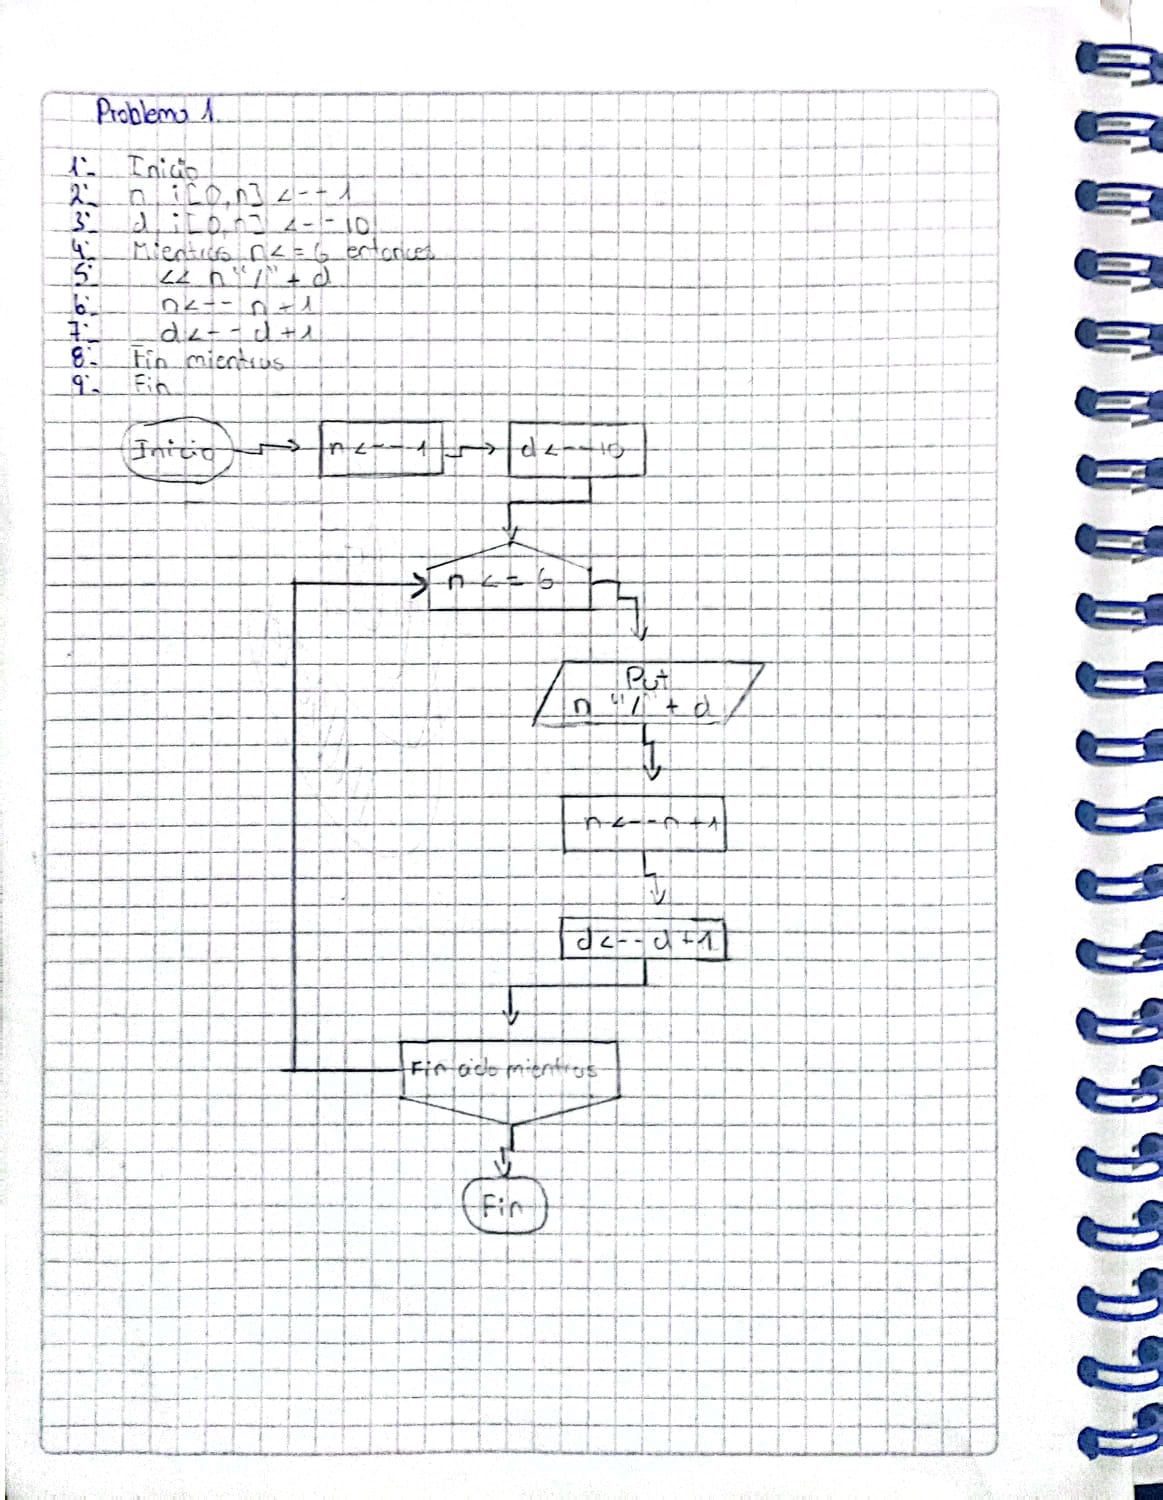 Problema 1
1:- Inicio
2:- n i[0,n] <-- 1
3:- d i[0,n] <-- 10
4:- Mientras n<=6 entonces
5:- << n "/" + d
6:- n<-- n+1
7:- d<-- d+1
8:- Fin mientras
9:- Fin
Inicio
n<---1
d<--10
n <= 6
Put
n "/" + d
n<--n+1
d<--d+1
Fin ciclo mientras
Fin